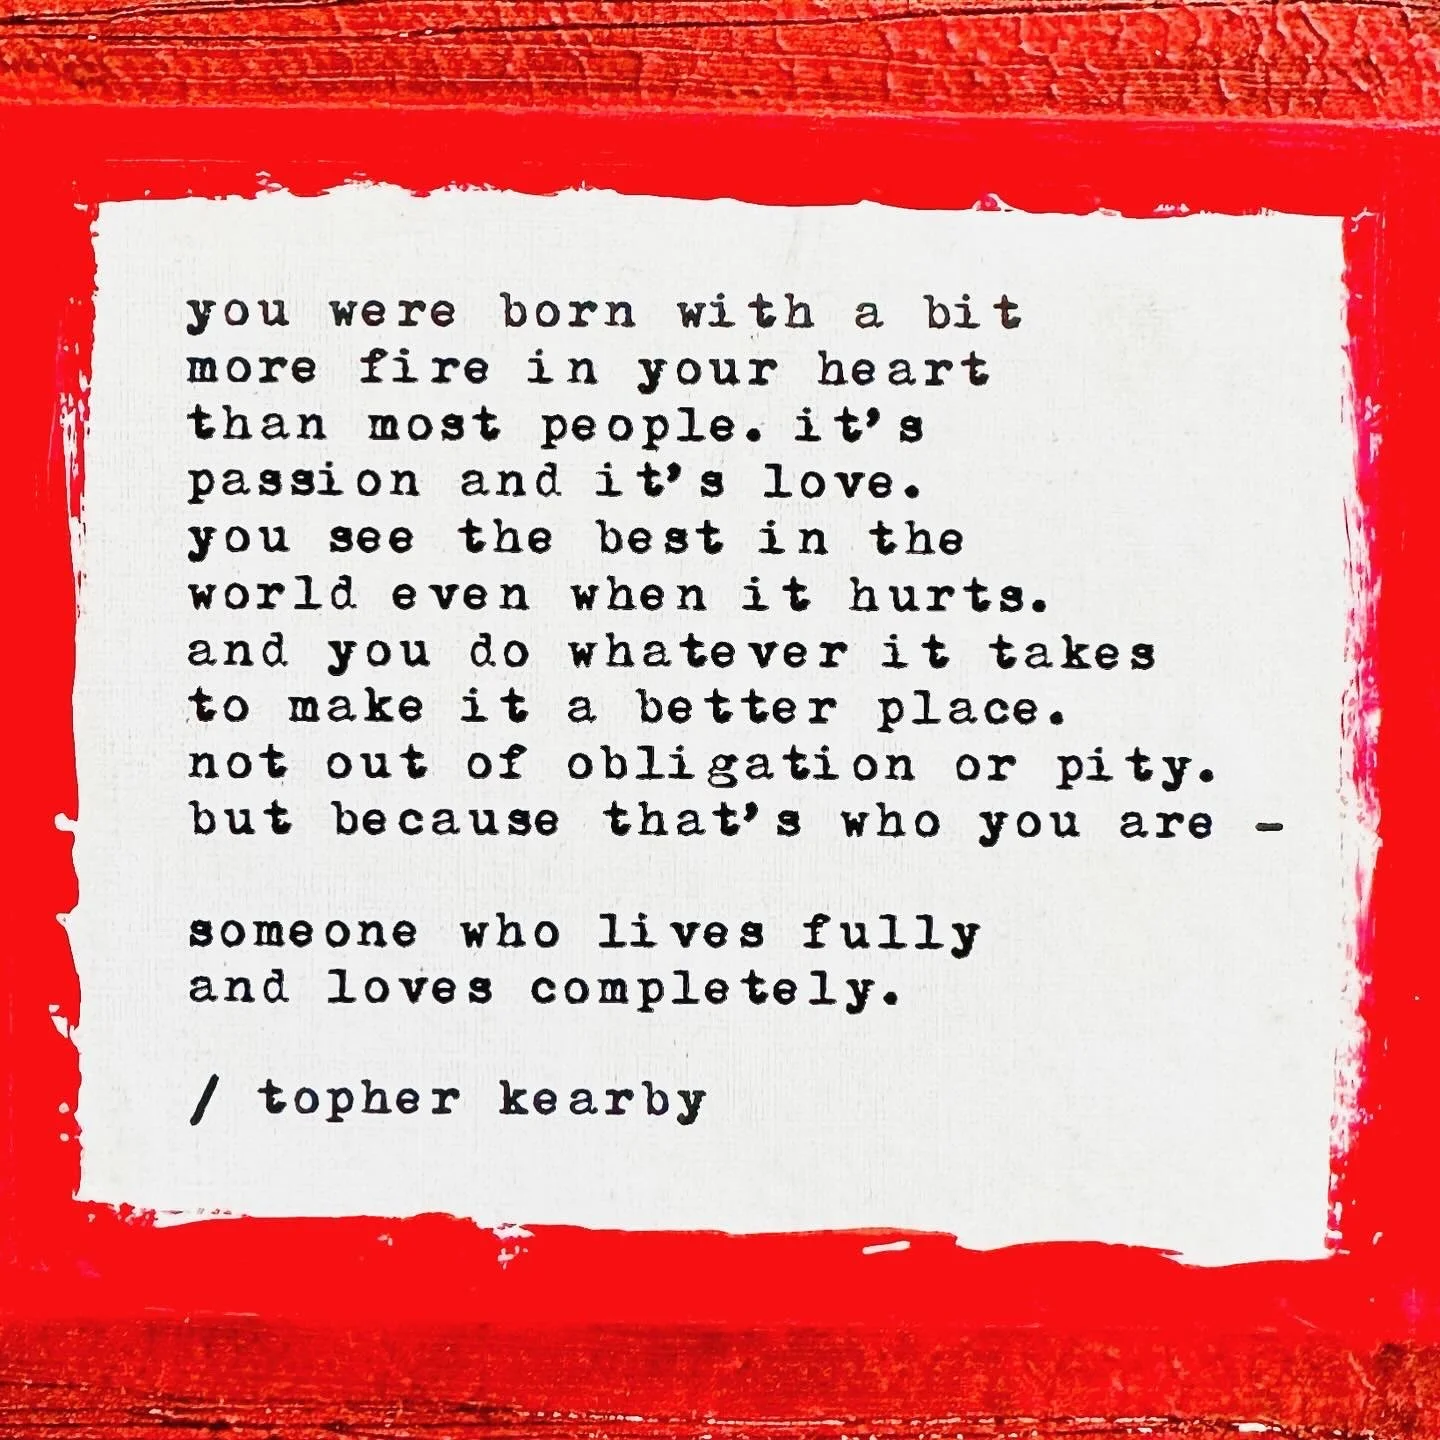 you were born with a bit
more fire in your heart
than most people. it's
passion and it's love.
you see the best in the
world even when it hurts.
and you do whatever it takes
to make it a better place.
not out of obligation or pity.
but because that's who you are -
someone who lives fully
and loves completely.
/ topher kearby